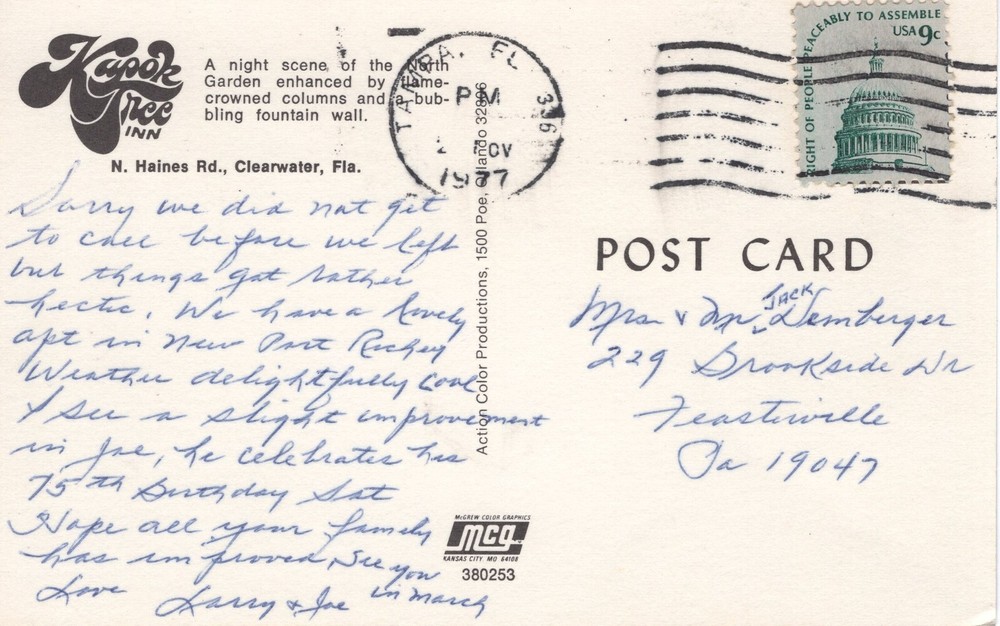 Kapok
Tree
INN
A night scene of the North
Garden enhanced by flame-
crowned columns and a bub-
bling fountain wall.
N. Haines Rd., Clearwater, Fla.
Sorry we did not get
to call before we left
but things got rather
hectic. We have a lovely
apt in New Port Richey
Weather delightfully cool
I see a slight improvement
in Joe, he celebrates his
75th Birthday Sat
Hope all your family
has improved, See you
in March
Love
Larry & Joe
Action Color Productions, 1500 Poe, Orlando 32806
McGREW COLOR GRAPHICS
mcg
KANSAS CITY, MO 64108
380253
TAMPA, FL
PM
NOV
1977
RIGHT OF PEOPLE PEACEABLY TO ASSEMBLE
USA 9c
POST CARD
JACK
Mrs & Mr Demberger
229 Brookside Dr
Feasterville
Pa 19047